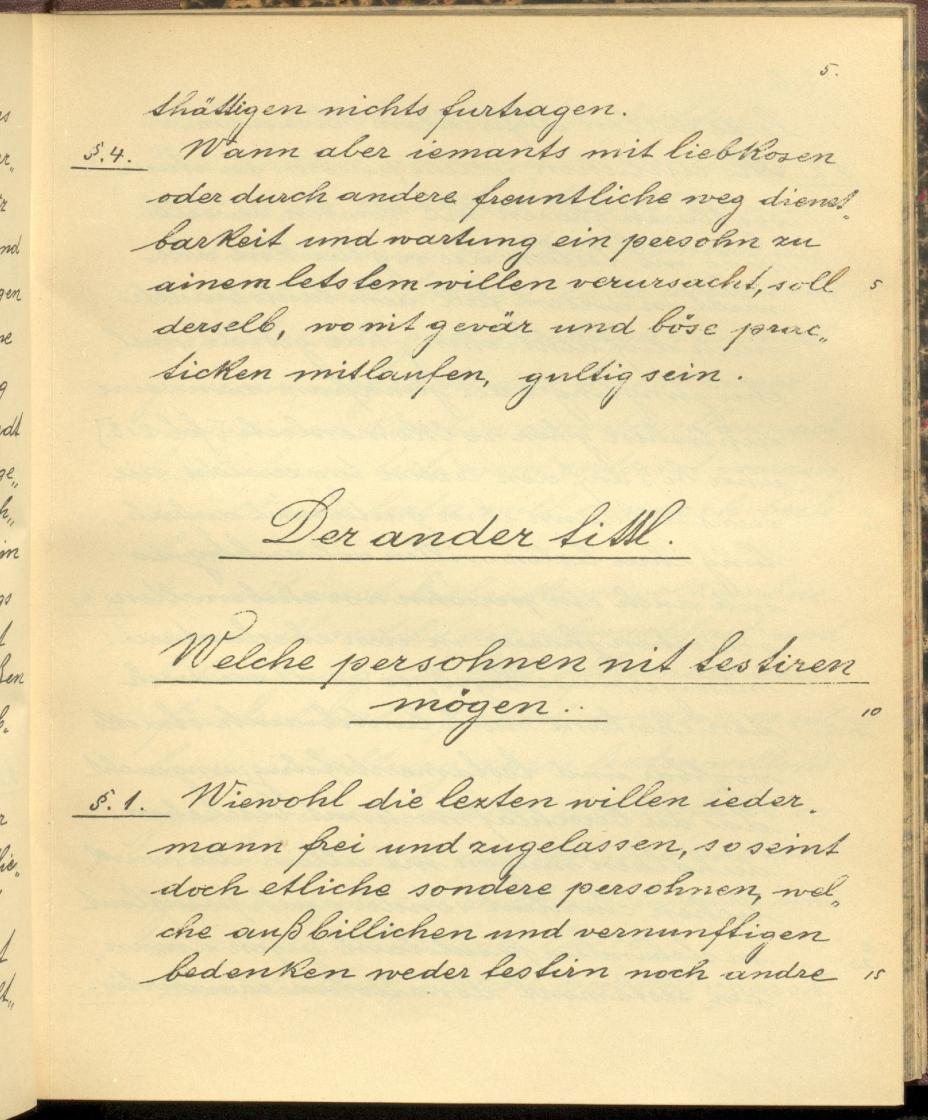 5.
thättigen nichts furtragen.
§.4. Wann aber iemants mit liebkosen
oder durch andere freuntliche weg dienst„
barkeit und wartung ein persohn zu
ainem letstem willen verursacht, soll 5
derselb, wo nit gevär und böse prac„
ticken mitlaufen, gultig sein.
Der ander tittl.
Welche persohnen nit testiren
mögen. 10
§.1. Wiewohl die lezten willen ieder„
mann frei und zugelassen, so seint
doch etliche sondere persohnen, wel„
che auß billichen und vernunftigen
bedenken weder testirn noch andre 15